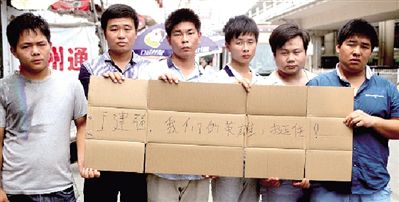 州通
丁建强，我们的英雄，挺住！！